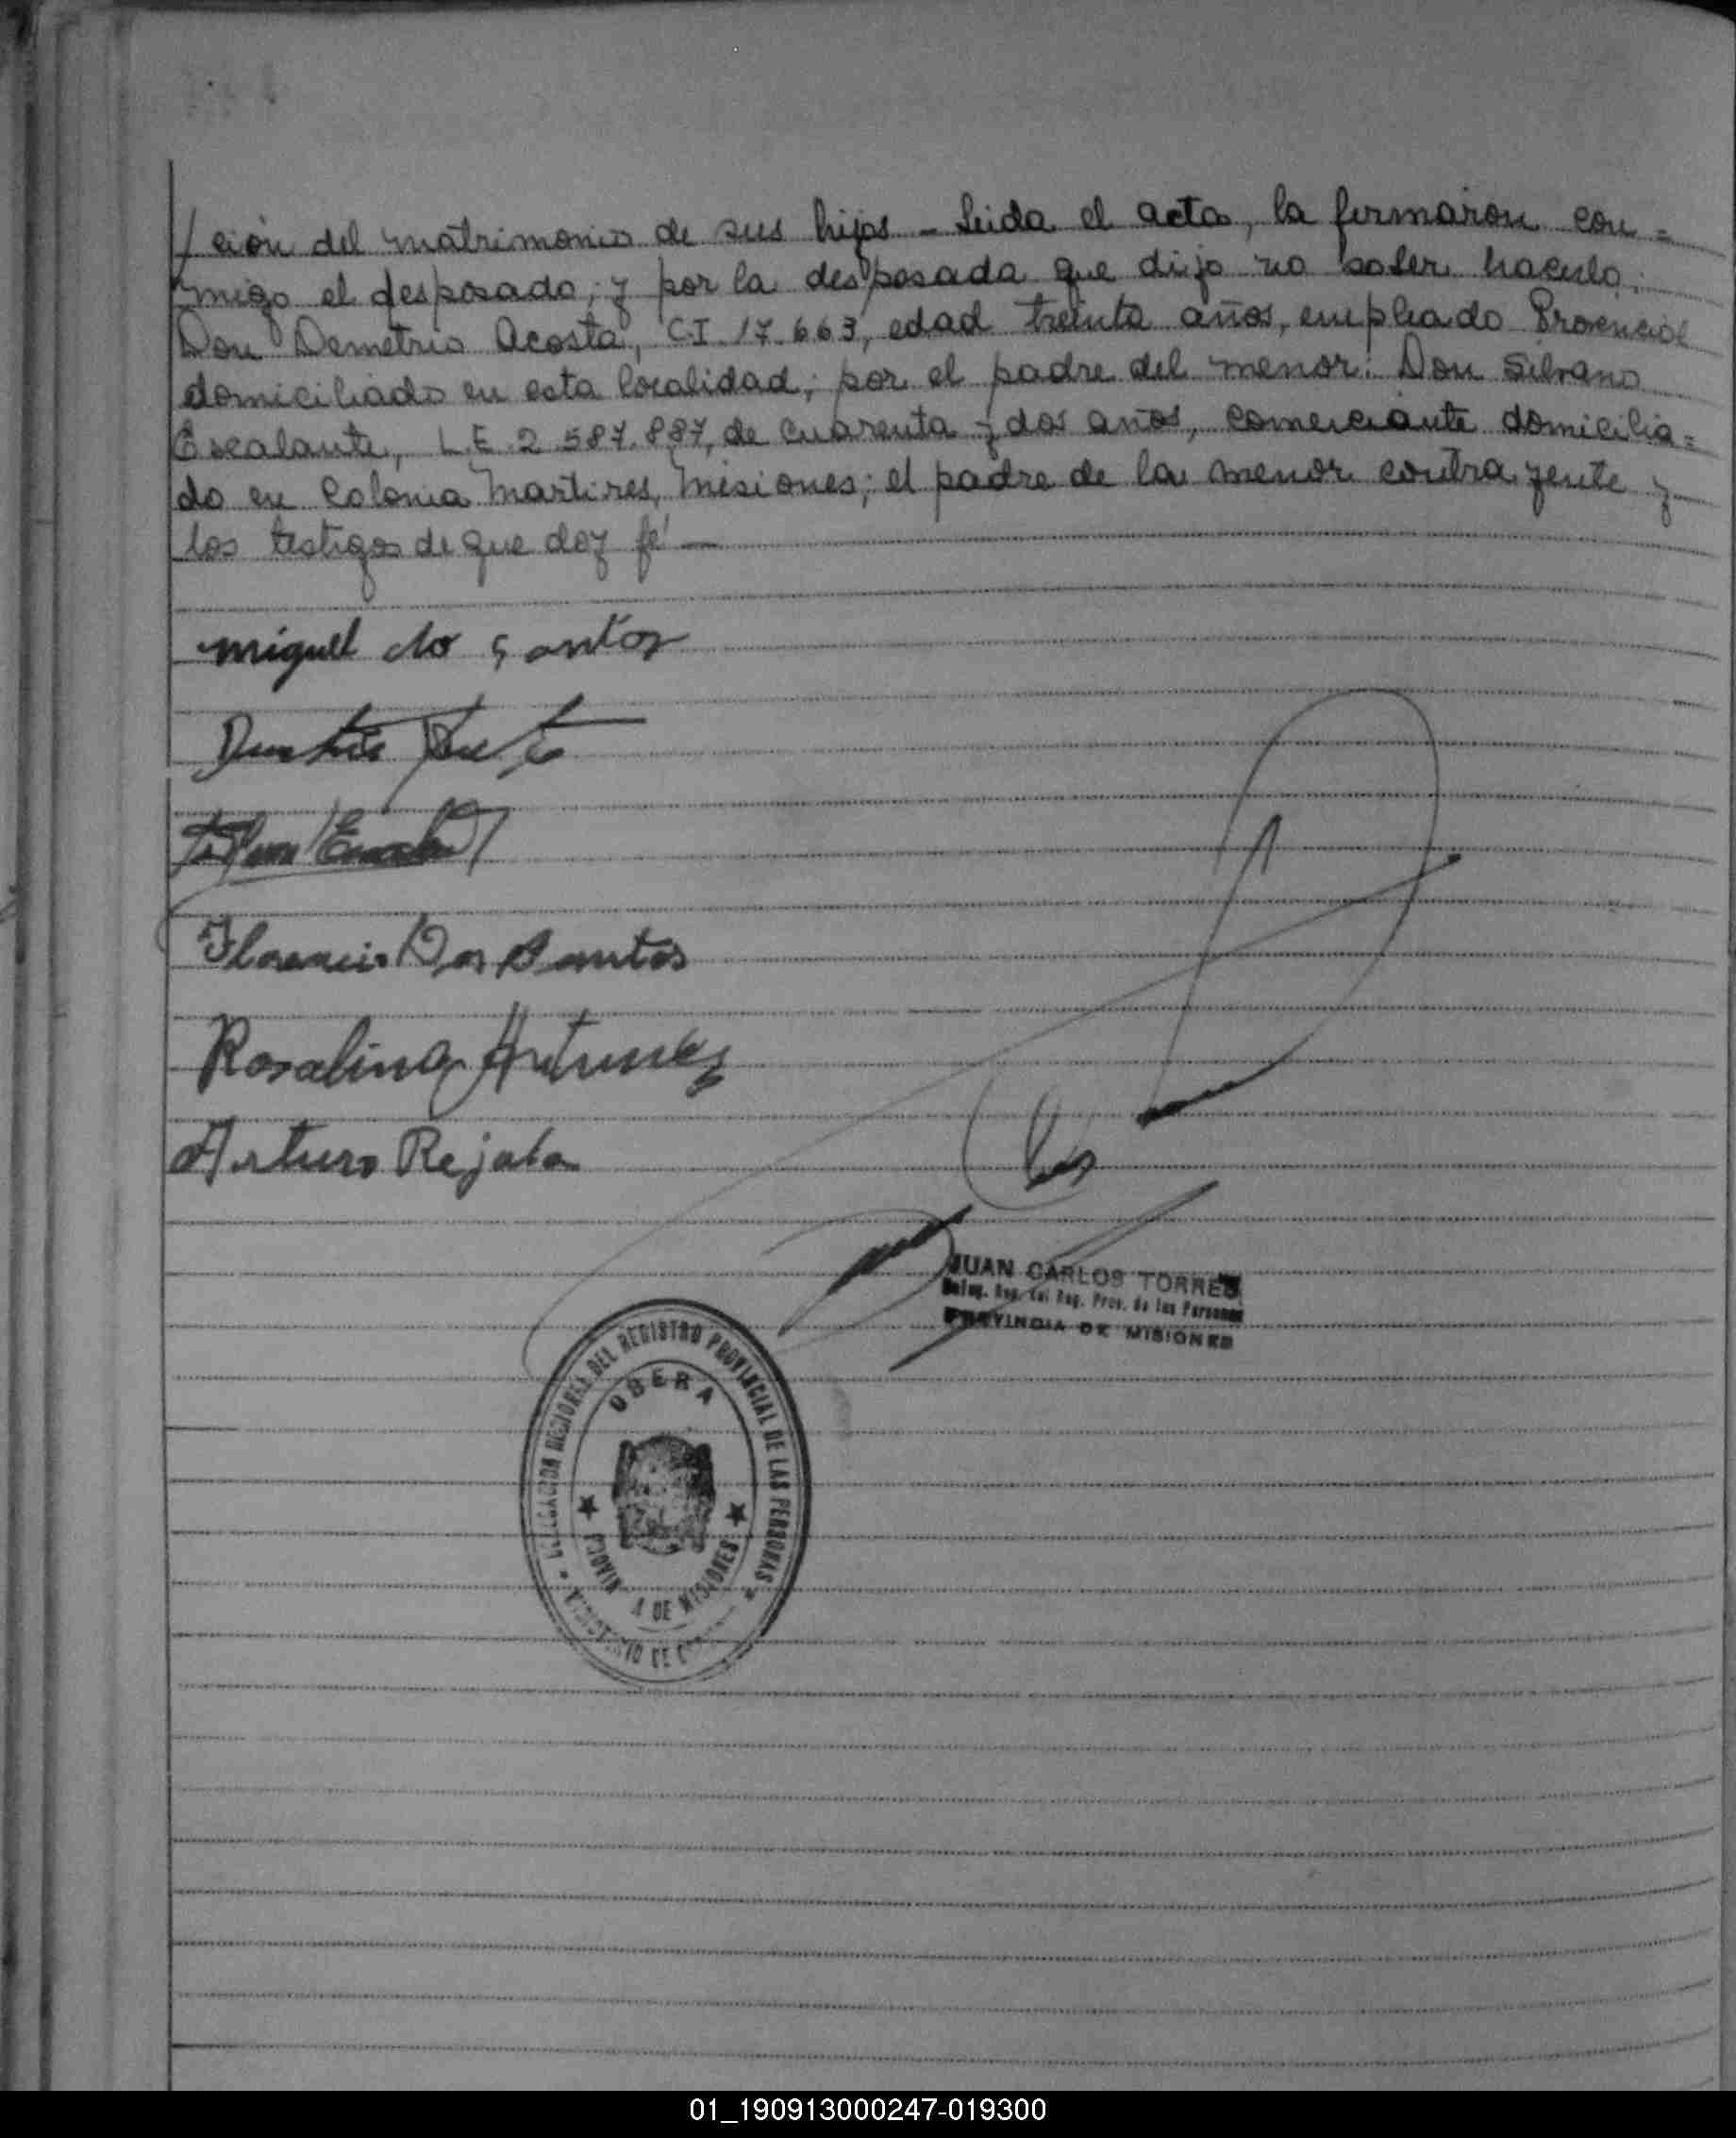 / ción del matrimonio de sus hijos - Leida el acta, la firmaron con=
migo el desposado, y por la desposada que dijo no saber hacerlo:
Don Demetrio Acosta, C.I. 17.663, edad treinta años, empleado Provincial
domiciliado en esta localidad; por el padre del menor: Don Silvano
Escalante, L.E. 2.587.887, de cuarenta y dos años, comerciante domicilia=
do en Colonia Martires, Misiones; el padre de la menor contrayente y
los testigos de que doy fé —
miguel do santos
Florencio Dos Santos
Rosalino Antunez
Arturo Rejala
JUAN CARLOS TORRES
Deleg. Reg. del Reg. Prov. de las Personas
PROVINCIA DE MISIONES
DELEGACION REGIONAL DEL REGISTRO PROVINCIAL DE LAS PERSONAS
OBERA
PROVINCIA DE MISIONES
01_190913000247-019300